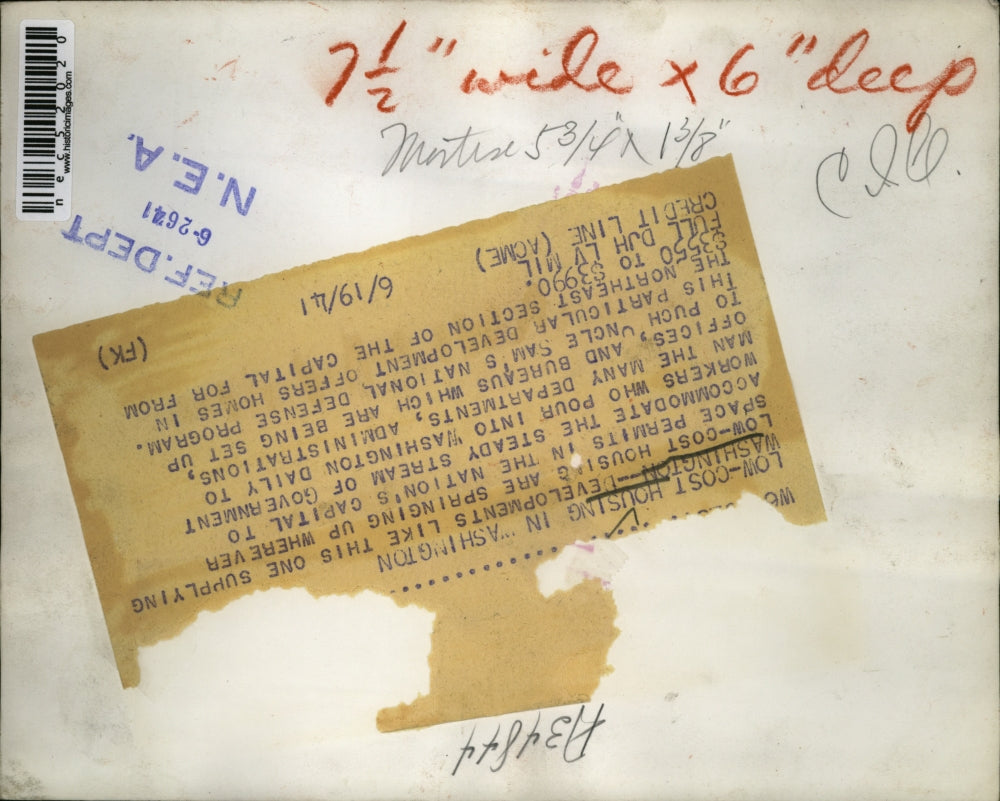 7 1/2" wide x 6" deep
Mortise 5 3/4" x 1 3/8"
nec52020
www.historicimages.com
REF. DEPT
6-26-41
N.E.A.
LOW-COST HOUSING IN WASHINGTON
WASHINGTON--DEVELOPMENTS LIKE THIS ONE SUPPLYING
LOW-COST HOUSING ARE SPRINGING UP WHEREVER
SPACE PERMITS IN THE NATION'S CAPITAL TO
ACCOMMODATE THE STEADY STREAM OF GOVERNMENT
WORKERS WHO POUR INTO WASHINGTON DAILY TO
MAN THE MANY DEPARTMENTS, ADMINISTRATIONS,
OFFICES, AND BUREAUS WHICH ARE BEING SET UP
TO PUCH UNCLE SAM'S NATIONAL DEFENSE PROGRAM.
THIS PARTICULAR DEVELOPMENT OFFERS HOMES IN
THE NORTHEAST SECTION OF THE CAPITAL FOR FROM
$3550 TO $3990.
FULL DJH LV MIL
CREDIT LINE (ACME) 6/19/41 (FK)
A34844